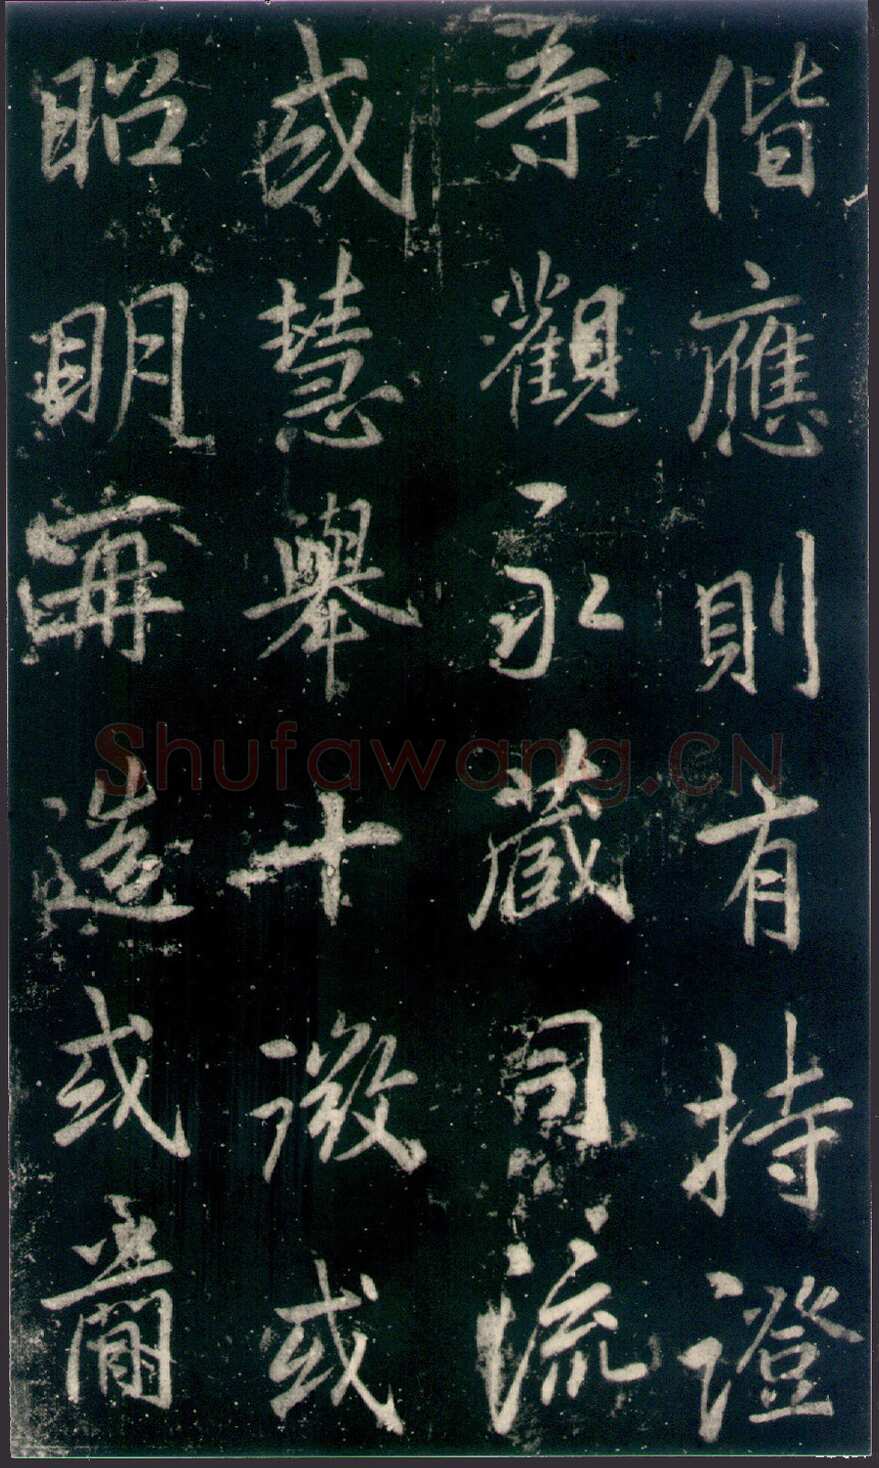 偕應則有持證
等觀永藏司流
或慧舉十徵或
昭明再造或
Shufawang.CN